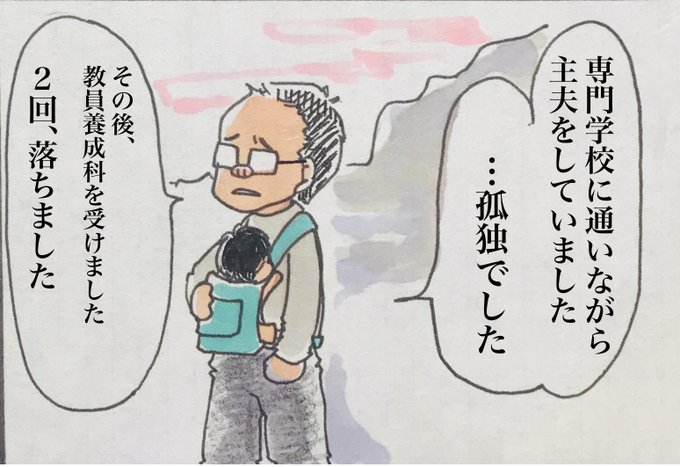 専門学校に通いながら
主夫をしていました
…孤独でした
その後、
教員養成科を受けました
２回、落ちました